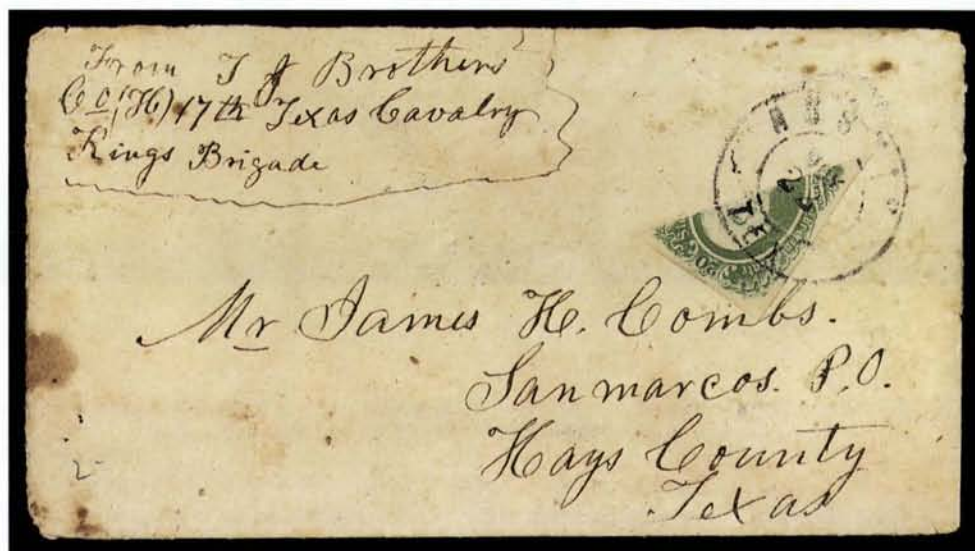 From T J Brothers
Co (H) 17th Texas Cavalry
Kings Brigade
AUS
20
Mr James H. Combs.
San marcos. P.O.
Hays County
Texas